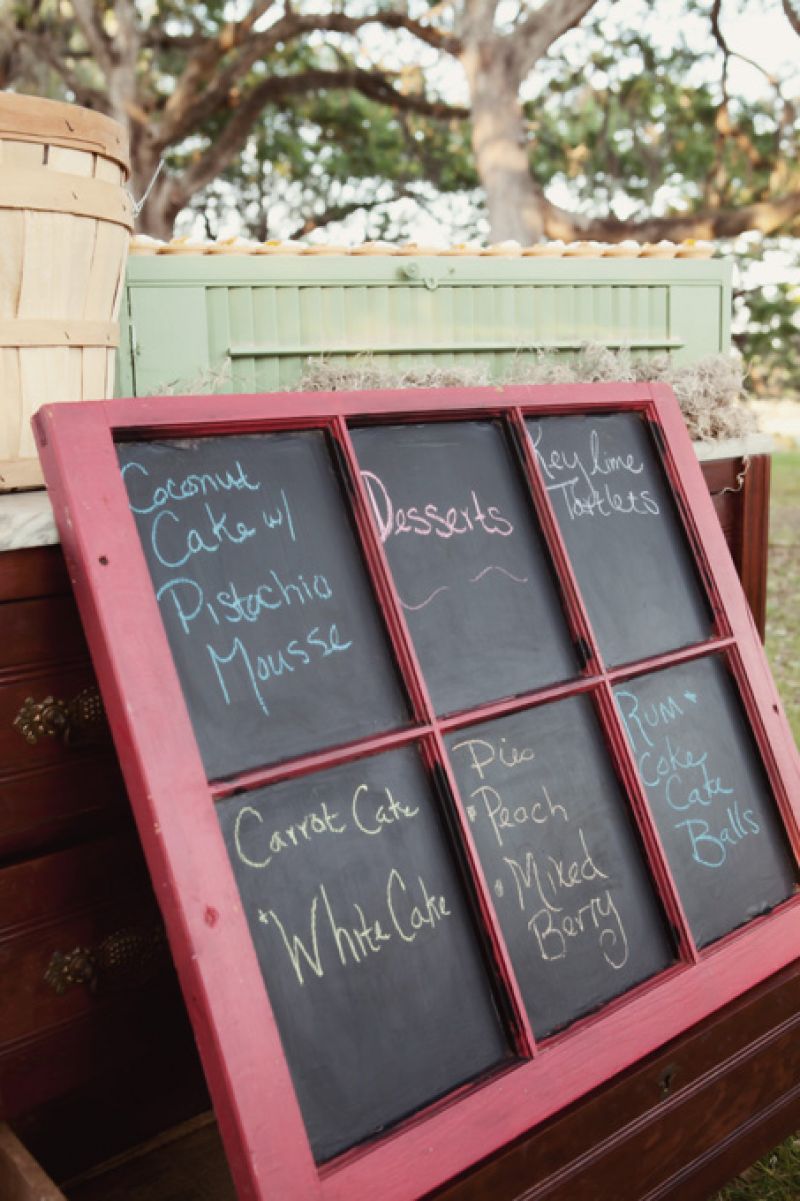 Coconut
Cake w/
Pistachio
Mousse
Desserts
Key lime
Tartlets
Carrot Cake
+ White Cake
Pies
• Peach
• Mixed
Berry
Rum +
Coke
Cake
Balls